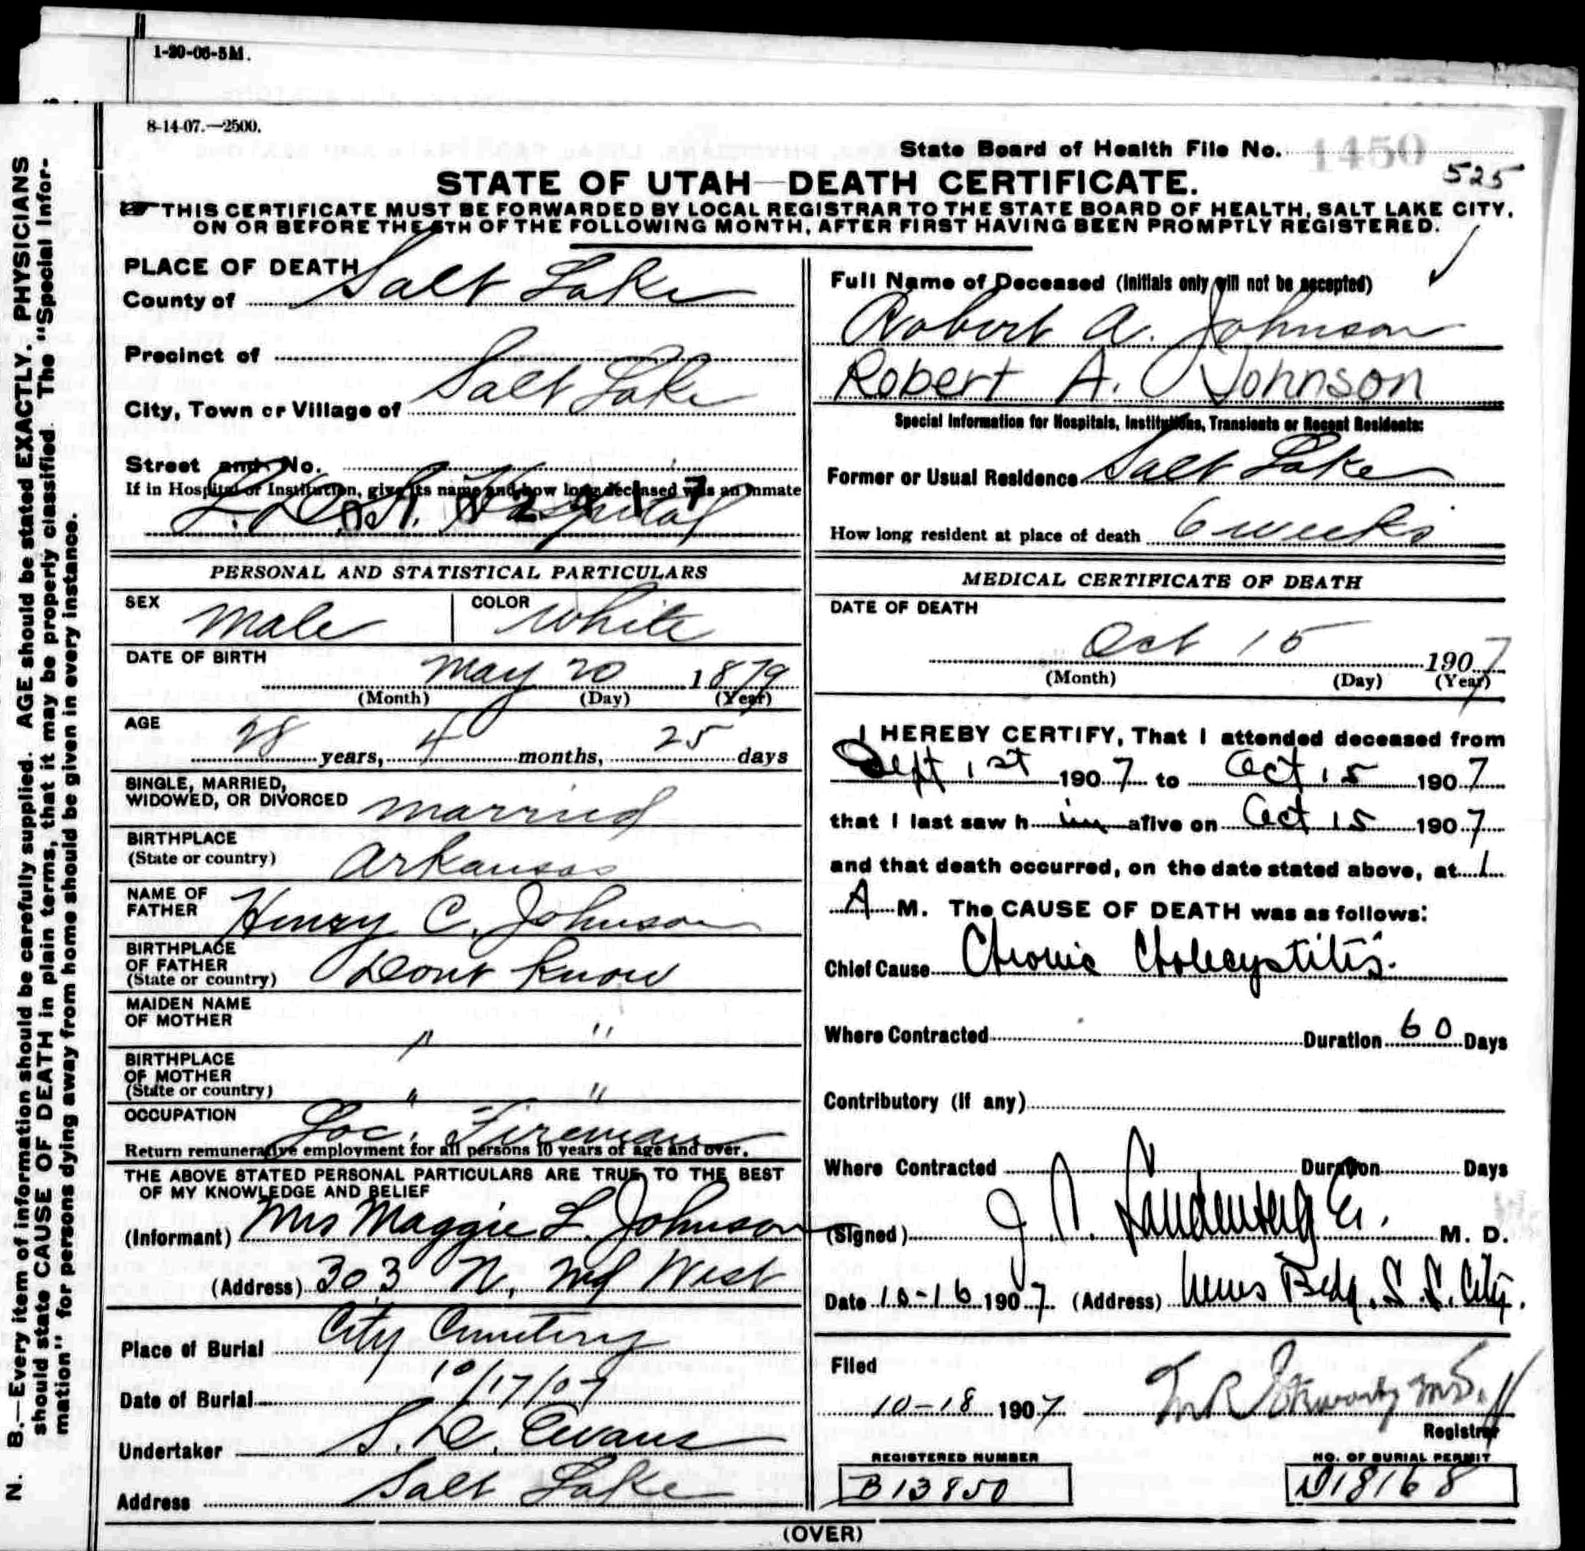 1-20-06-5M.
8-14-07.—2500.
State Board of Health File No. 1450
525
STATE OF UTAH—DEATH CERTIFICATE.
THIS CERTIFICATE MUST BE FORWARDED BY LOCAL REGISTRAR TO THE STATE BOARD OF HEALTH, SALT LAKE CITY,
ON OR BEFORE THE 5TH OF THE FOLLOWING MONTH, AFTER FIRST HAVING BEEN PROMPTLY REGISTERED.
PLACE OF DEATH
County of Salt Lake
Precinct of
City, Town or Village of Salt Lake
Street and No.
If in Hospital or Institution, give its name and how long deceased was an inmate
L.D.S. Hospital
PERSONAL AND STATISTICAL PARTICULARS
SEX male COLOR White
DATE OF BIRTH May 20 1879
(Month) (Day) (Year)
AGE
28 years, 4 months, 25 days
SINGLE, MARRIED,
WIDOWED, OR DIVORCED married
BIRTHPLACE
(State or country) Arkansas
NAME OF
FATHER Henry C. Johnson
BIRTHPLACE
OF FATHER
(State or country) Dont Know
MAIDEN NAME
OF MOTHER " "
BIRTHPLACE
OF MOTHER
(State or country) " "
OCCUPATION Loc. Fireman
Return remunerative employment for all persons 10 years of age and over.
THE ABOVE STATED PERSONAL PARTICULARS ARE TRUE TO THE BEST
OF MY KNOWLEDGE AND BELIEF
(Informant) Mrs Maggie L. Johnson
(Address) 303 N. West
Place of Burial City Cemetery
Date of Burial 10/17/07
Undertaker S. D. Evans
Address Salt Lake
Full Name of Deceased (Initials only will not be accepted)
Robert A. Johnson
Robert A. Johnson
Special Information for Hospitals, Institutions, Transients or Recent Residents:
Former or Usual Residence Salt Lake
How long resident at place of death 6 weeks
MEDICAL CERTIFICATE OF DEATH
DATE OF DEATH
Oct 15 1907
(Month) (Day) (Year)
I HEREBY CERTIFY, That I attended deceased from
Sept 1st 1907 to Oct 15 1907
that I last saw him alive on Oct 15 1907
and that death occurred, on the date stated above, at 1
A M. The CAUSE OF DEATH was as follows:
Chief Cause Chronic Cholecystitis.
Where Contracted Duration 60 Days
Contributory (if any)
Where Contracted Duration Days
(Signed) J. M. D.
Date 10-16 1907 (Address) News Bldg. S. L. City.
Filed
10-18 1907
Registrar
REGISTERED NUMBER
B13850
NO. OF BURIAL PERMIT
D18168
(OVER)
N. B.—Every item of information should be carefully supplied. AGE should be stated EXACTLY. PHYSICIANS
should state CAUSE OF DEATH in plain terms, that it may be properly classified. The "Special Infor-
mation" for persons dying away from home should be given in every instance.